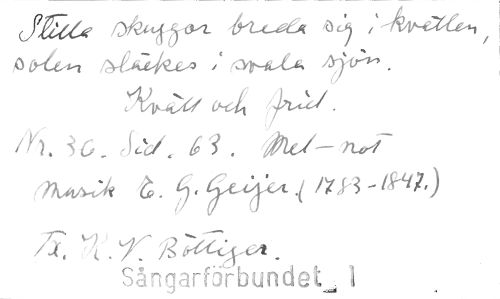 Stilla skuggor breda sig i kvällen,
solen släckes i svala sjön.
Kväll och frid.
Nr. 36. Sid. 63. Mel-not
musik E. G. Geijer. (1783-1847.)
Tx. K. V. Böttiger.
Sångarförbundet 1